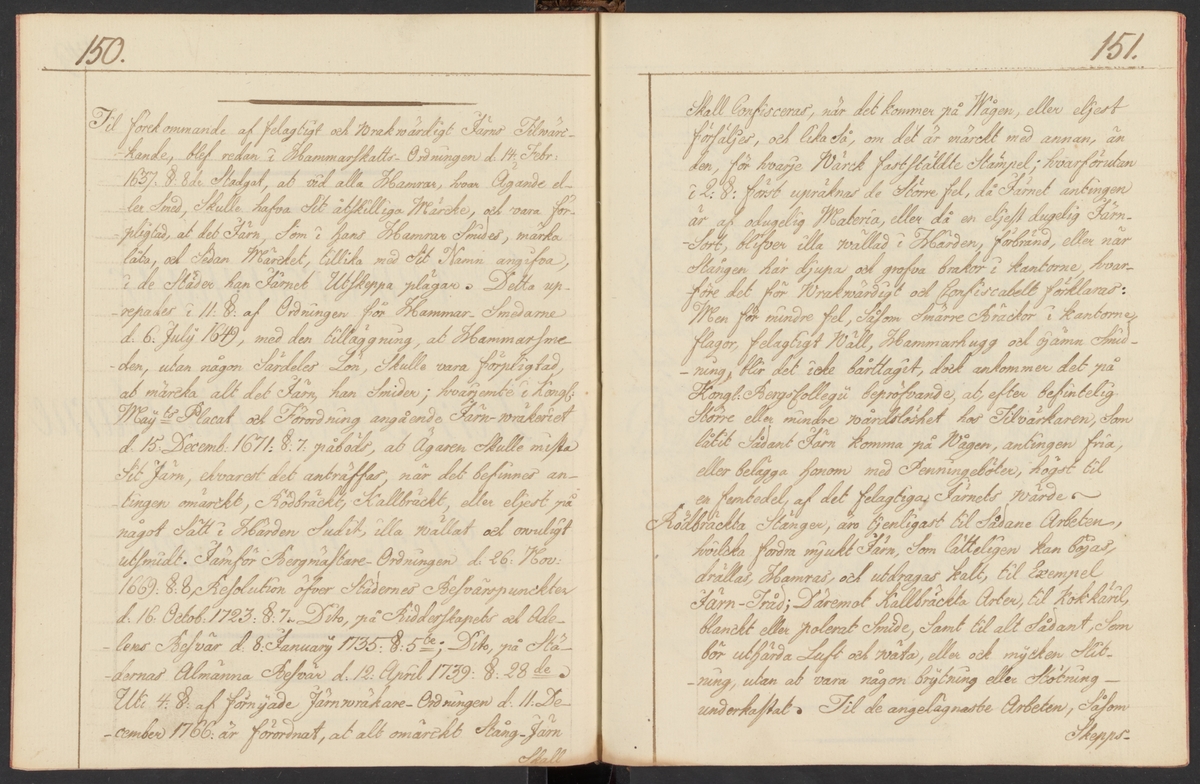 150.
Til forekommande af felagtigt och Wrakwärdigt Järns Tilwärc-
-kande, blef redan i Hammarskatts-Ordningen d. 14. Febr:
1637. §. 8de Stadgat, at vid alla Hamrar, hvar Ägande el-
-ler Smed, Skulle hafva Sit åtskilliga Märcke, och vara för-
-pligtad, at det Järn, Som i hans Hamrar Smides, märka
låta, och Sedan Märcket, tillika med Sit Namn angifva,
i de Städer han Järnet Utskeppa plägar. Detta up-
-repades i 11: §: af Ordningen för Hammar-Smedarne
d. 6. July 1649, med den tilläggning, at Hammarsme-
-den, utan någon Särdeles Lön, Skulle vara förpligtad,
at märcka alt det Järn, han Smider; hvarjemte i Kongl.
Maÿ:tz Placat och Förordning angående Järn-wräkeriet
d. 15. Decemb. 1671: §. 7. påböds, at Ägaren Skulle mista
Sit Järn, ehvarest det anträffas, när det befinnes an-
-tingen omärckt, Rödbräckt, Kallbräckt, eller eljest på
något Sätt i Härden Svait, illa wällat och owuligt
utsmidt. Jämför Bergmästare-Ordningen d. 26. Nov:
1669. §. 8, Resolution öfver Städernes Besvärspunckter
d. 16. Octob. 1723. §. 7. Dito, på Ridderskapets och Ade-
-lens Besvär d. 8. Januarÿ 1735. §. 5te; Dito, på Stä-
-dernas Almänna Besvär d. 12. April 1739. §. 28de.
Uti 4. §. af förnÿade Järnwräkare-Ordningen d. 11. De-
-cember 1766. är förordnat, at alt omärckt Stång-Järn
Skall
151.
Skall Confisceras, när det kommer på Wågen, eller eljest
försäljes, och lika Så, om det är märckt med annan, än
den, för hvarje Wärck fastställte Stämpel; hvarförutan
i 2: §: först upräknas de Större fel, då Järnet antingen
är af odugelig Materia, eller då en eljest dugelig Järn-
-Sort, blifver illa wällad i Härden, förbränd, eller når
Stången har djupa och grofva brakor i kantorne, hvar-
-före det för Wrakwärdigt och Confiscabelt förklaras:
Men för mindre fel, Såsom Smärre Bräckor i kantorne,
flagor, felagtigt Wäll, Hammarhugg och ojämn Smid-
-ning, blir det icke bårttagit, dock ankommer det på
Kongl. Bergs Collegii bepröfvande, at, efter befintelig
Större eller mindre wårdslöshet hos Tilvärkaren, Som
låtit Sådant Järn komma på Wågen, antingen fria,
eller belägga honom med Penningeböter, högst til
en femtedel af det felagtiga Järnets wärde
Rödbräckta Stänger, äro tjenligast til Sådane Arbeten,
hvilcka fordra mjukt Järn, Som lätteligen kan böjas,
drällas, Hamras, och utdragas kalt, til Exempel
Järn-Tråd; Däremot Kallbräckta Arter, til Kokkäril,
blanckt eller polerat Smide, Samt til alt Sådant, Som
bör uthärda Luft och wäta, eller ock mÿcken Slit-
-ning, utan at vara någon brÿtning eller Stötning
underkastat. Til de angelägnaste Arbeten, Såsom
Skepps-